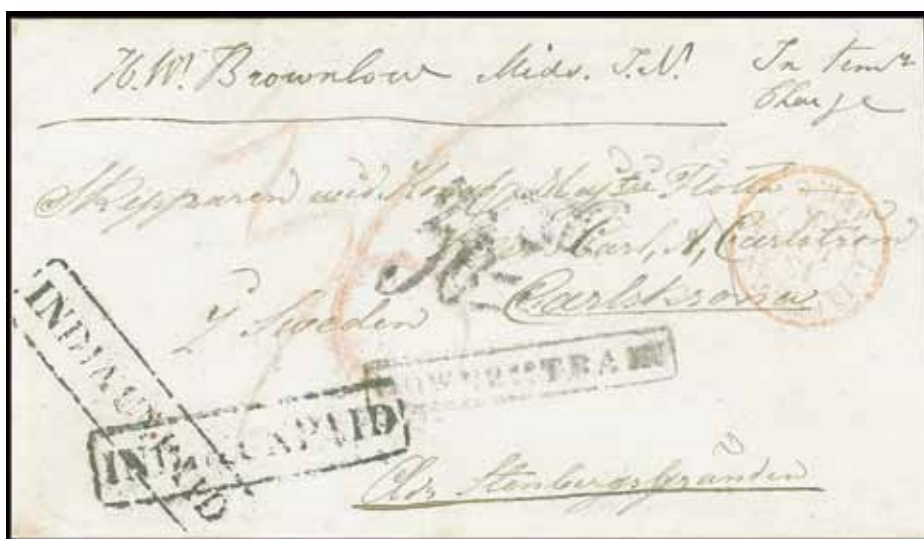 H. W. Brownlow Mids. I.N. In tem^r
Charge
Skepparen wid Kongl Maj^ts Flotta
Carl, A, Carlström
Carlskrona
Sweden
INDIA UNPAID
INDIA UNPAID
Stenbergsgränden